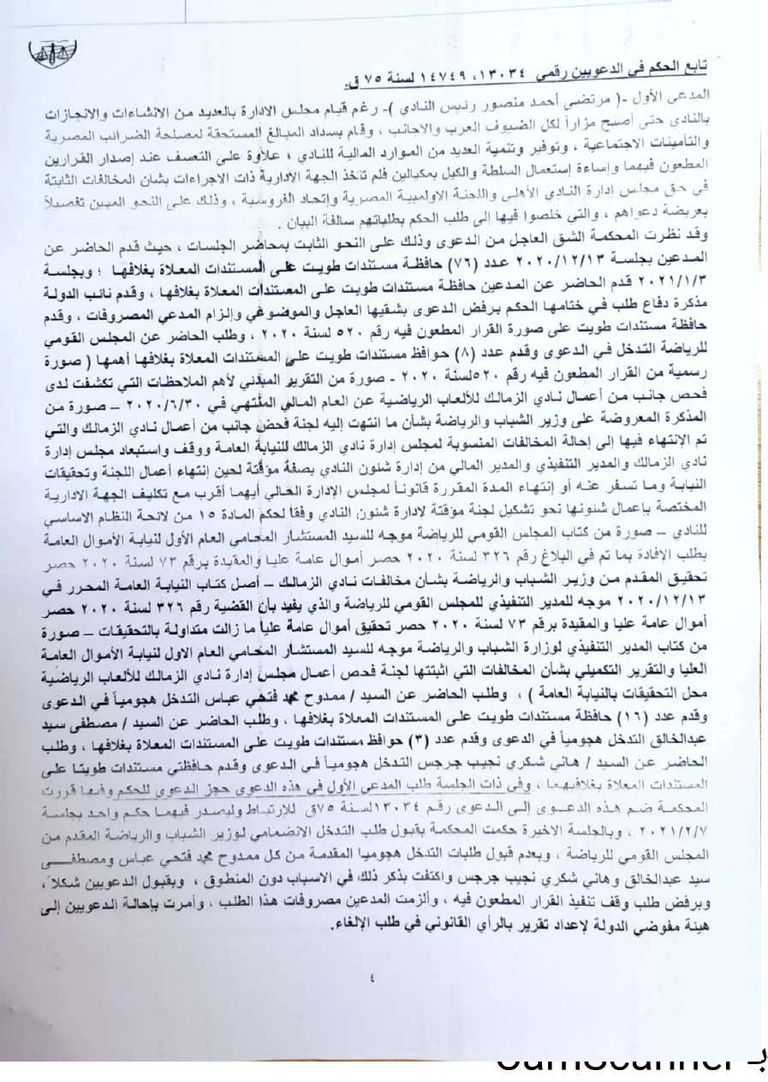 تابع الحكم في الدعويين رقمي ١٣٠٣٤، ١٤٧٤٩ لسنة ٧٥ ق.
المدعى الأول -( مرتضي أحمد منصور رئيس النادي )- رغم قيام مجلس الادارة بالعديد من الانشاءات والانجازات
بالنادي حتى أصبح مزاراً لكل الضيوف العرب والاجانب ، وقام بسداد المبالغ المستحقة لمصلحة الضرائب المصرية
والتأمينات الاجتماعية ، وتوفير وتنمية العديد من الموارد المالية للنادي ؛ علاوة على التعسف عند إصدار القرارين
المطعون فيهما وإساءة إستعمال السلطة والكيل بمكيالين فلم تتخذ الجهة الادارية ذات الاجراءات بشان المخالفات الثابتة
في حق مجلس ادارة النادي الأهلى واللجنة الاولمبية المصرية وإتحاد الفروسية ، وذلك على النحو المبين تفصيلاً
بعريضة دعواهم ، والتي خلصوا فيها الى طلب الحكم بطلباتهم سالفة البيان .
وقد نظرت المحكمة الشق العاجل من الدعوى وذلك على النحو الثابت بمحاضر الجلسات ، حيث قدم الحاضر عن
المدعين بجلسة ٢٠٢٠/١٢/١٣ عدد (٧٦) حافظة مستندات طويت على المستندات المعلاة بغلافها ؛ وبجلسة
٢٠٢١/١/٣ قدم الحاضر عن المدعين حافظة مستندات طويت على المستندات المعلاة بغلافها ، وقدم نائب الدولة
مذكرة دفاع طلب في ختامها الحكم برفض الدعوى بشقيها العاجل والموضوعي وإلزام المدعي المصروفات ، وقدم
حافظة مستندات طويت على صورة القرار المطعون فيه رقم ٥٢٠ لسنة ٢٠٢٠ ، وطلب الحاضر عن المجلس القومي
للرياضة التدخل في الدعوى وقدم عدد (٨) حوافظ مستندات طويت على المستندات المعلاة بغلافها أهمها ( صورة
رسمية من القرار المطعون فيه رقم ٥٢٠ لسنة ٢٠٢٠ - صورة من التقرير المبدئي لأهم الملاحظات التي تكشفت لدى
فحص جانب من أعمال نادي الزمالك للألعاب الرياضية عن العام المالي المنتهي في ٢٠٢٠/٦/٣٠ – صورة من
المذكرة المعروضة على وزير الشباب والرياضة بشأن ما انتهت إليه لجنة فحص جانب من أعمال نادي الزمالك والتي
تم الإنتهاء فيها إلى إحالة المخالفات المنسوبة لمجلس إدارة نادي الزمالك للنيابة العامة ووقف واستبعاد مجلس إدارة
نادي الزمالك والمدير التنفيذي والمدير المالي من إدارة شئون النادي بصفة مؤقتة لحين إنتهاء أعمال اللجنة وتحقيقات
النيابة وما تسفر عنه أو إنتهاء المدة المقررة قانوناً لمجلس الإدارة الحالي أيهما أقرب مع تكليف الجهة الادارية
المختصة بإعمال شئونها نحو تشكيل لجنة مؤقتة لإدارة شئون النادي وفقا لحكم المادة ١٥ من لائحة النظام الاساسي
للنادي – صورة من كتاب المجلس القومي للرياضة موجه للسيد المستشار المحامي العام الأول لنيابة الأموال العامة
بطلب الإفادة بما تم في البلاغ رقم ٣٢٦ لسنة ٢٠٢٠ حصر أموال عامة عليا والمقيدة برقم ٧٣ لسنة ٢٠٢٠ حصر
تحقيق المقدم من وزير الشباب والرياضة بشأن مخالفات نادي الزمالك – أصل كتاب النيابة العامة المحرر في
٢٠٢٠/١٢/١٣ موجه للمدير التنفيذي للمجلس القومي للرياضة والذي يفيد بأن القضية رقم ٣٢٦ لسنة ٢٠٢٠ حصر
أموال عامة عليا والمقيدة برقم ٧٣ لسنة ٢٠٢٠ حصر تحقيق أموال عامة عليا ما زالت متداولة بالتحقيقات – صورة
من كتاب المدير التنفيذي لوزارة الشباب والرياضة موجه للسيد المستشار المحامي العام الاول لنيابة الأموال العامة
العليا والتقرير التكميلي بشأن المخالفات التي اثبتتها لجنة فحص أعمال مجلس إدارة نادي الزمالك للألعاب الرياضية
محل التحقيقات بالنيابة العامة ) ، وطلب الحاضر عن السيد / ممدوح محمد فتحي عباس التدخل هجومياً في الدعوى
وقدم عدد (١٦) حافظة مستندات طويت على المستندات المعلاة بغلافها ، وطلب الحاضر عن السيد / مصطفى سيد
عبدالخالق التدخل هجومياً في الدعوى وقدم عدد (٣) حوافظ مستندات طويت على المستندات المعلاة بغلافها ، وطلب
الحاضر عن السيد / هاني شكري نجيب جرجس التدخل هجومياً في الدعوى وقدم حافظتي مستندات طويتا على
المستندات المعلاة بغلافيهما ، وفي ذات الجلسة طلب المدعي الأول في هذه الدعوى حجز الدعوي للحكم وفيها قررت
المحكمة ضم هذه الدعوى إلى الدعوى رقم ١٣٠٣٤ لسنة ٧٥ق للإرتباط وليصدر فيهما حكم واحد بجلسة
٢٠٢١/٢/٧ ، وبالجلسة الاخيرة حكمت المحكمة بقبول طلب التدخل الانضمامي لوزير الشباب والرياضة المقدم من
المجلس القومي للرياضة ، وبعدم قبول طلبات التدخل هجوميا المقدمة من كل ممدوح محمد فتحي عباس ومصطفى
سيد عبدالخالق وهاني شكري نجيب جرجس واكتفت بذكر ذلك في الاسباب دون المنطوق ، وبقبول الدعويين شكلاً ،
وبرفض طلب وقف تنفيذ القرار المطعون فيه ، وألزمت المدعين مصروفات هذا الطلب ، وأمرت بإحالة الدعويين إلى
هيئة مفوضي الدولة لإعداد تقرير بالرأي القانوني في طلب الإلغاء.
٤
بـ CamScanner